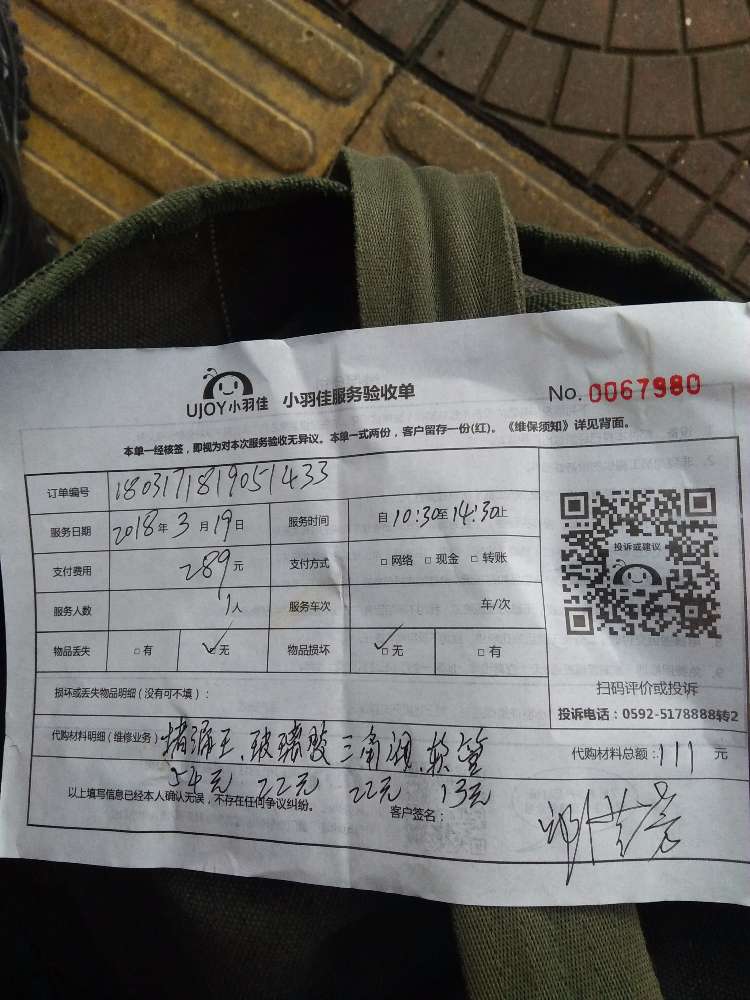 UJOY小羽佳 小羽佳服务验收单 No. 0067980
本单一经核签，即视为对本次服务验收无异议。本单一式两份，客户留存一份(红)。《维保须知》详见背面。
订单编号 1803171819051433
服务日期 2018年3月19日 服务时间 自10:30至14:30止
支付费用 289元 支付方式 □网络 □现金 □转账
服务人数 1人 服务车次 车/次
物品丢失 □有 ✓□无 物品损坏 ✓□无 □有
投诉或建议
扫码评价或投诉
投诉电话：0592-5178888转2
损坏或丢失物品明细（没有可不填）：
代购材料明细（维修业务）：堵漏王、玻璃胶 三角阀、软管 代购材料总额：111元
54元 22元 22元 13元
以上填写信息已经本人确认无误，不存在任何争议纠纷。 客户签名：